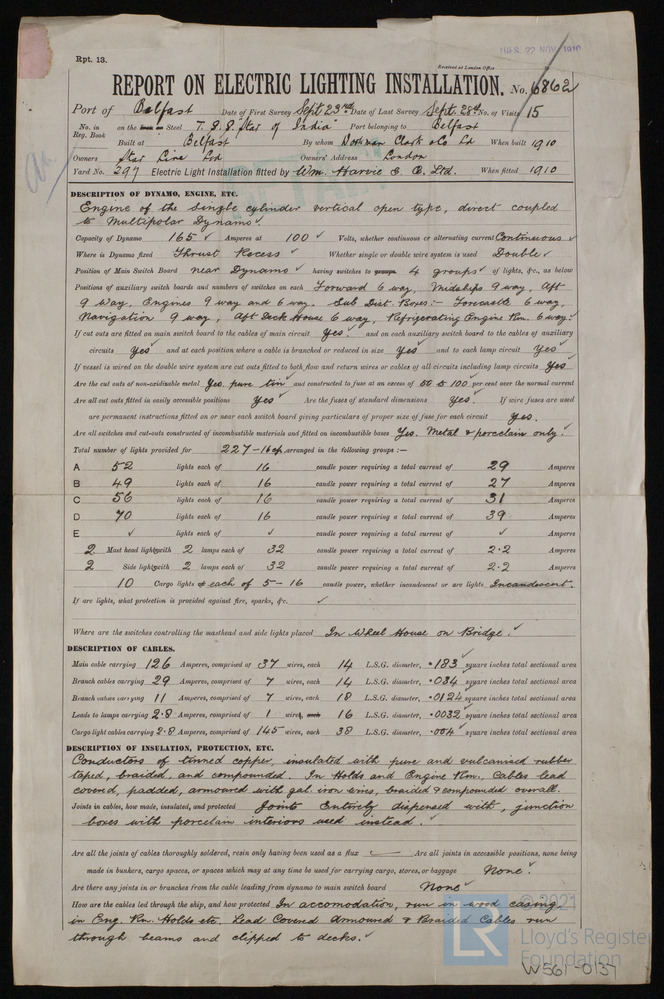 Rpt. 13.
Received at London Office
REPORT ON ELECTRIC LIGHTING INSTALLATION. No. 6862
Port of Belfast Date of First Survey Sept 23rd Date of Last Survey Sept. 28th No. of Visits 15
No. in Reg. Book on the Iron or Steel T. S. S. Star of India Port belonging to Belfast
Built at Belfast By whom Workman Clark & Co Ld When built 1910
Owners Star Line Ltd Owners' Address London
Yard No. 297 Electric Light Installation fitted by Wm. Harvie & Co. Ltd. When fitted 1910
DESCRIPTION OF DYNAMO, ENGINE, ETC.
Engine of the single cylinder vertical open type, direct coupled
to Multipolar Dynamo
Capacity of Dynamo 165 Amperes at 100 Volts, whether continuous or alternating current Continuous
Where is Dynamo fixed Thrust Recess Whether single or double wire system is used Double
Position of Main Switch Board near Dynamo having switches to groups 4 groups of lights, &c., as below
Positions of auxiliary switch boards and numbers of switches on each Forward 6 way, Midships 9 way, Aft
9 way, Engines 9 way and 6 way. Sub Dist. Boxes:- Forecastle 6 way,
Navigation 9 way, Aft Deck House 6 way, Refrigerating Engine Rm. 6 way.
If cut outs are fitted on main switch board to the cables of main circuit Yes. and on each auxiliary switch board to the cables of auxiliary
circuits Yes and at each position where a cable is branched or reduced in size Yes and to each lamp circuit Yes
If vessel is wired on the double wire system are cut outs fitted to both flow and return wires or cables of all circuits including lamp circuits Yes
Are the cut outs of non-oxidizable metal Yes, pure tin and constructed to fuse at an excess of 50 to 100 per cent over the normal current
Are all cut outs fitted in easily accessible positions Yes Are the fuses of standard dimensions Yes. If wire fuses are used
are permanent instructions fitted on or near each switch board giving particulars of proper size of fuse for each circuit Yes.
Are all switches and cut-outs constructed of incombustible materials and fitted on incombustible bases Yes. Metal & porcelain only.
Total number of lights provided for 227-16cp. arranged in the following groups :—
A 52 lights each of 16 candle power requiring a total current of 29 Amperes
B 49 lights each of 16 candle power requiring a total current of 27 Amperes
C 56 lights each of 16 candle power requiring a total current of 31 Amperes
D 70 lights each of 16 candle power requiring a total current of 39 Amperes
E ✓ lights each of ✓ candle power requiring a total current of ✓ Amperes
2 Mast head lights with 2 lamps each of 32 candle power requiring a total current of 2·2 Amperes
2 Side lights with 2 lamps each of 32 candle power requiring a total current of 2·2 Amperes
10 Cargo lights of each of 5-16 candle power, whether incandescent or arc lights Incandescent.
If arc lights, what protection is provided against fire, sparks, &c. ✓
Where are the switches controlling the masthead and side lights placed In Wheel House on Bridge.
DESCRIPTION OF CABLES.
Main cable carrying 126 Amperes, comprised of 37 wires, each 14 L.S.G. diameter, ·183 square inches total sectional area
Branch cables carrying 29 Amperes, comprised of 7 wires, each 14 L.S.G. diameter, ·034 square inches total sectional area
Branch cables carrying 11 Amperes, comprised of 7 wires, each 18 L.S.G. diameter, ·0124 square inches total sectional area
Leads to lamps carrying 2·8 Amperes, comprised of 1 wire, each 16 L.S.G. diameter, ·0032 square inches total sectional area
Cargo light cables carrying 2·8 Amperes, comprised of 145 wires, each 38 L.S.G. diameter, ·004 square inches total sectional area
DESCRIPTION OF INSULATION, PROTECTION, ETC.
Conductors of tinned copper, insulated with pure and vulcanised rubber
taped, braided, and compounded. In Holds and Engine Rm., Cables lead
covered, padded, armoured with gal. iron wires, braided & compounded overall.
Joints in cables, how made, insulated, and protected Joints Entirely dispensed with, junction
boxes with porcelain interiors used instead.
Are all the joints of cables thoroughly soldered, resin only having been used as a flux Are all joints in accessible positions, none being
made in bunkers, cargo spaces, or spaces which may at any time be used for carrying cargo, stores, or baggage None.
Are there any joints in or branches from the cable leading from dynamo to main switch board None
How are the cables led through the ship, and how protected In accomodation, run in wood casing.
in Eng. Rm. Holds etc. Lead Covered Armoured & Braided Cables run
through beams and clipped to decks.
© 2021
LR
Lloyd's Register
Foundation
W561-0137